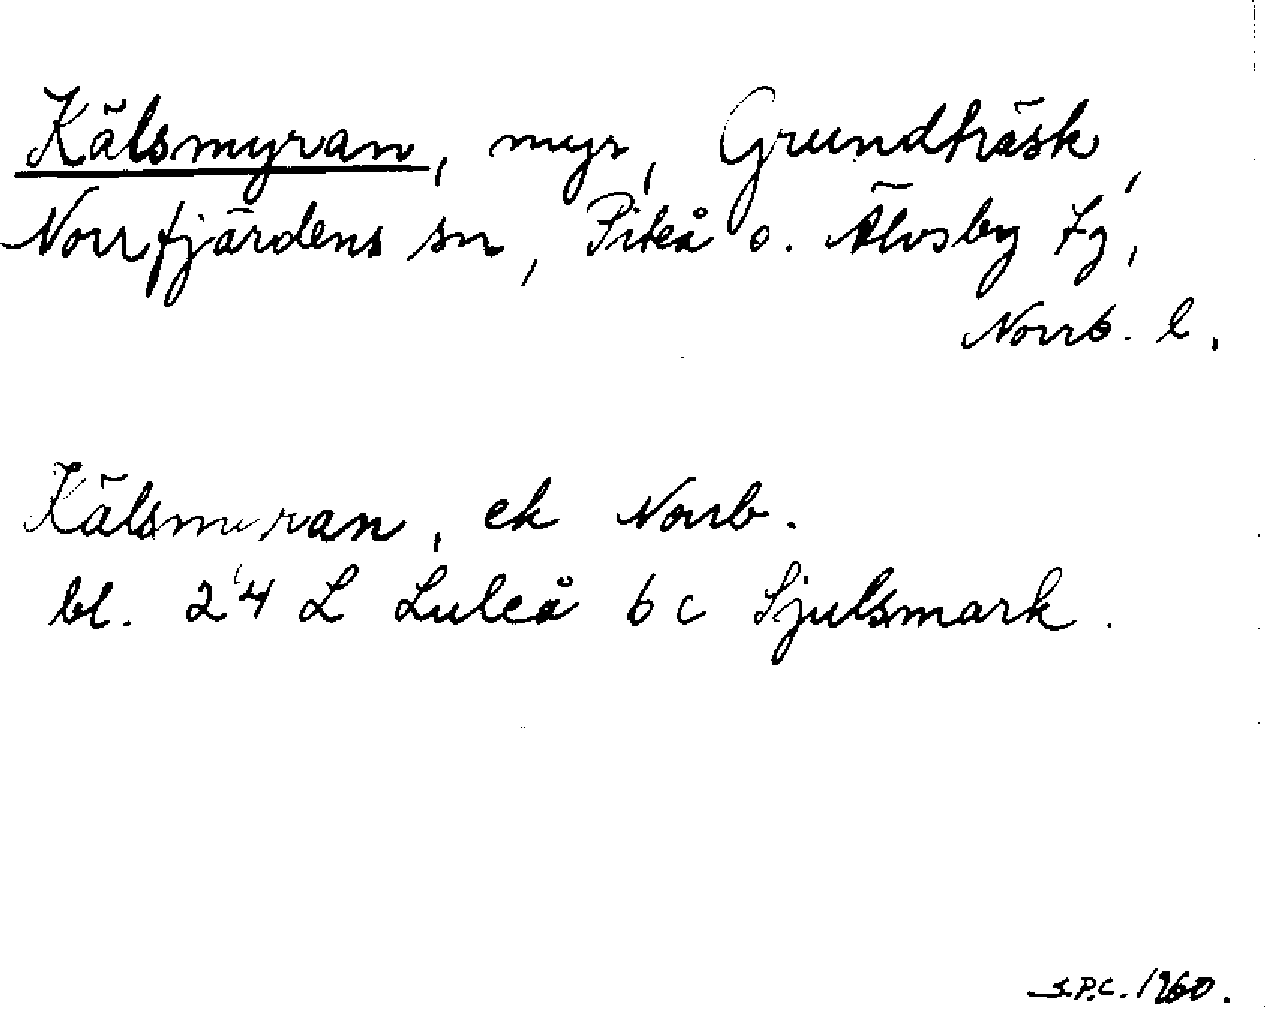 Kälsmyran, myr, Grundträsk,
Norrfjärdens sn, Piteå o. Älvsby tg,
Norrb. l.
Kälsmyran, ek Norrb.
bl. 24 L Luleå 6c Sjulsmark.
S.P.C. 1960.